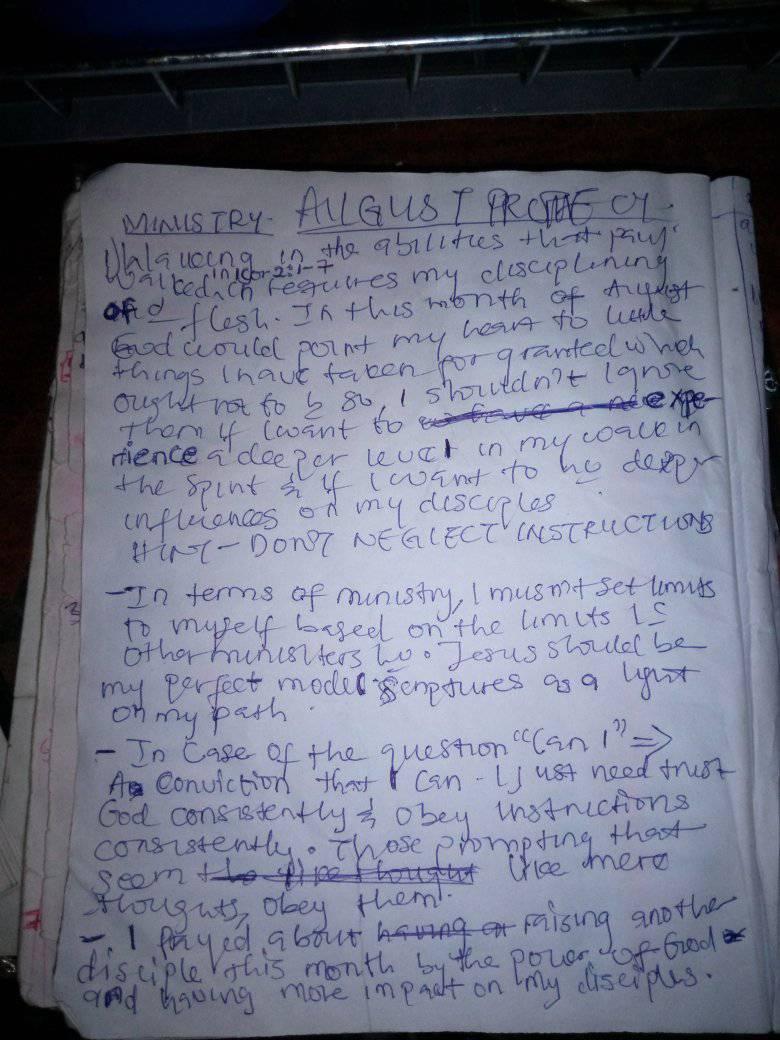 MINISTRY. AUGUST
in the abilities that paul
walked in 1cor 2:1-7
requires my disciplining
of d flesh. In this month of August
God would point my heart to little
things I have taken for granted which
ought not to b so, I shouldn't ignore
them if I want to expe-
rience a deeper level in my walk in
the spirit & if I want to hv deeper
influences on my disciples
HINT - DON'T NEGLECT INSTRUCTIONS
- In terms of ministry, I musn't set limits
to myself based on the limits
other ministers hv. Jesus should be
my perfect model scriptures as a light
on my path.
- In case of the question "Can I" =>
A conviction that I can. I just need trust
God consistently & obey instructions
consistently. Those prompting that
seem like mere
thoughts, obey them.
- I prayed about raising another
disciple this month by the power of God
and having more impact on my disciples.